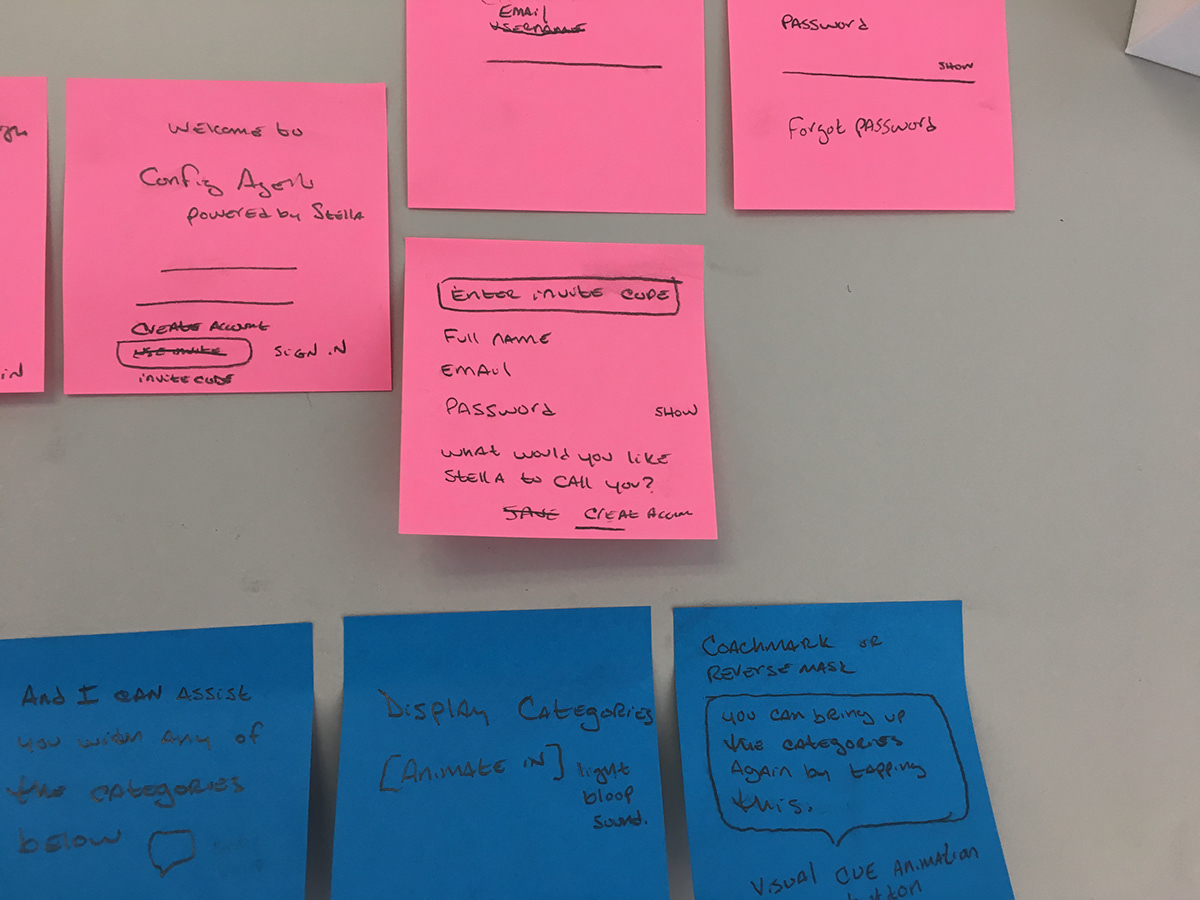 Email
Username
Password
Show
Forgot Password
in
Welcome to
Config Agent
powered by Stella
Create Account
Use invite
Sign in
invite code
Enter invite code
Full name
Email
Password Show
What would you like
Stella to call you?
Save Create Accoun
And I can assist
you with any of
the categories
below
Display Categories
[Animate in] light
bloop
sound.
Coachmark or
Reverse mask
You can bring up
the categories
again by tapping
this.
Visual cue animation
button